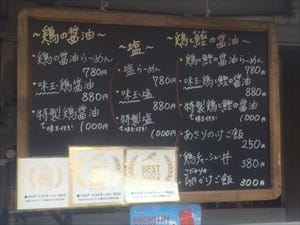 〜鶏の醤油〜
・鶏の醤油らーめん
780円
・味玉鶏醤油
880円
・特製鶏醤油
(味玉付き) 1000円
〜塩〜
・塩らーめん
780円
・味玉塩
880円
・特製塩
(味玉付き) 1000円
〜鶏と鰹の醤油〜
・鶏と鰹の醤油らーめん
780円
・味玉鶏と鰹の醤油
880円
・特製鶏と鰹の醤油
(味玉付き) 1000円
・あさりのっけご飯
250円
・鶏チャーシュー丼
380円
ご飯 300円
BEST
MICHELIN